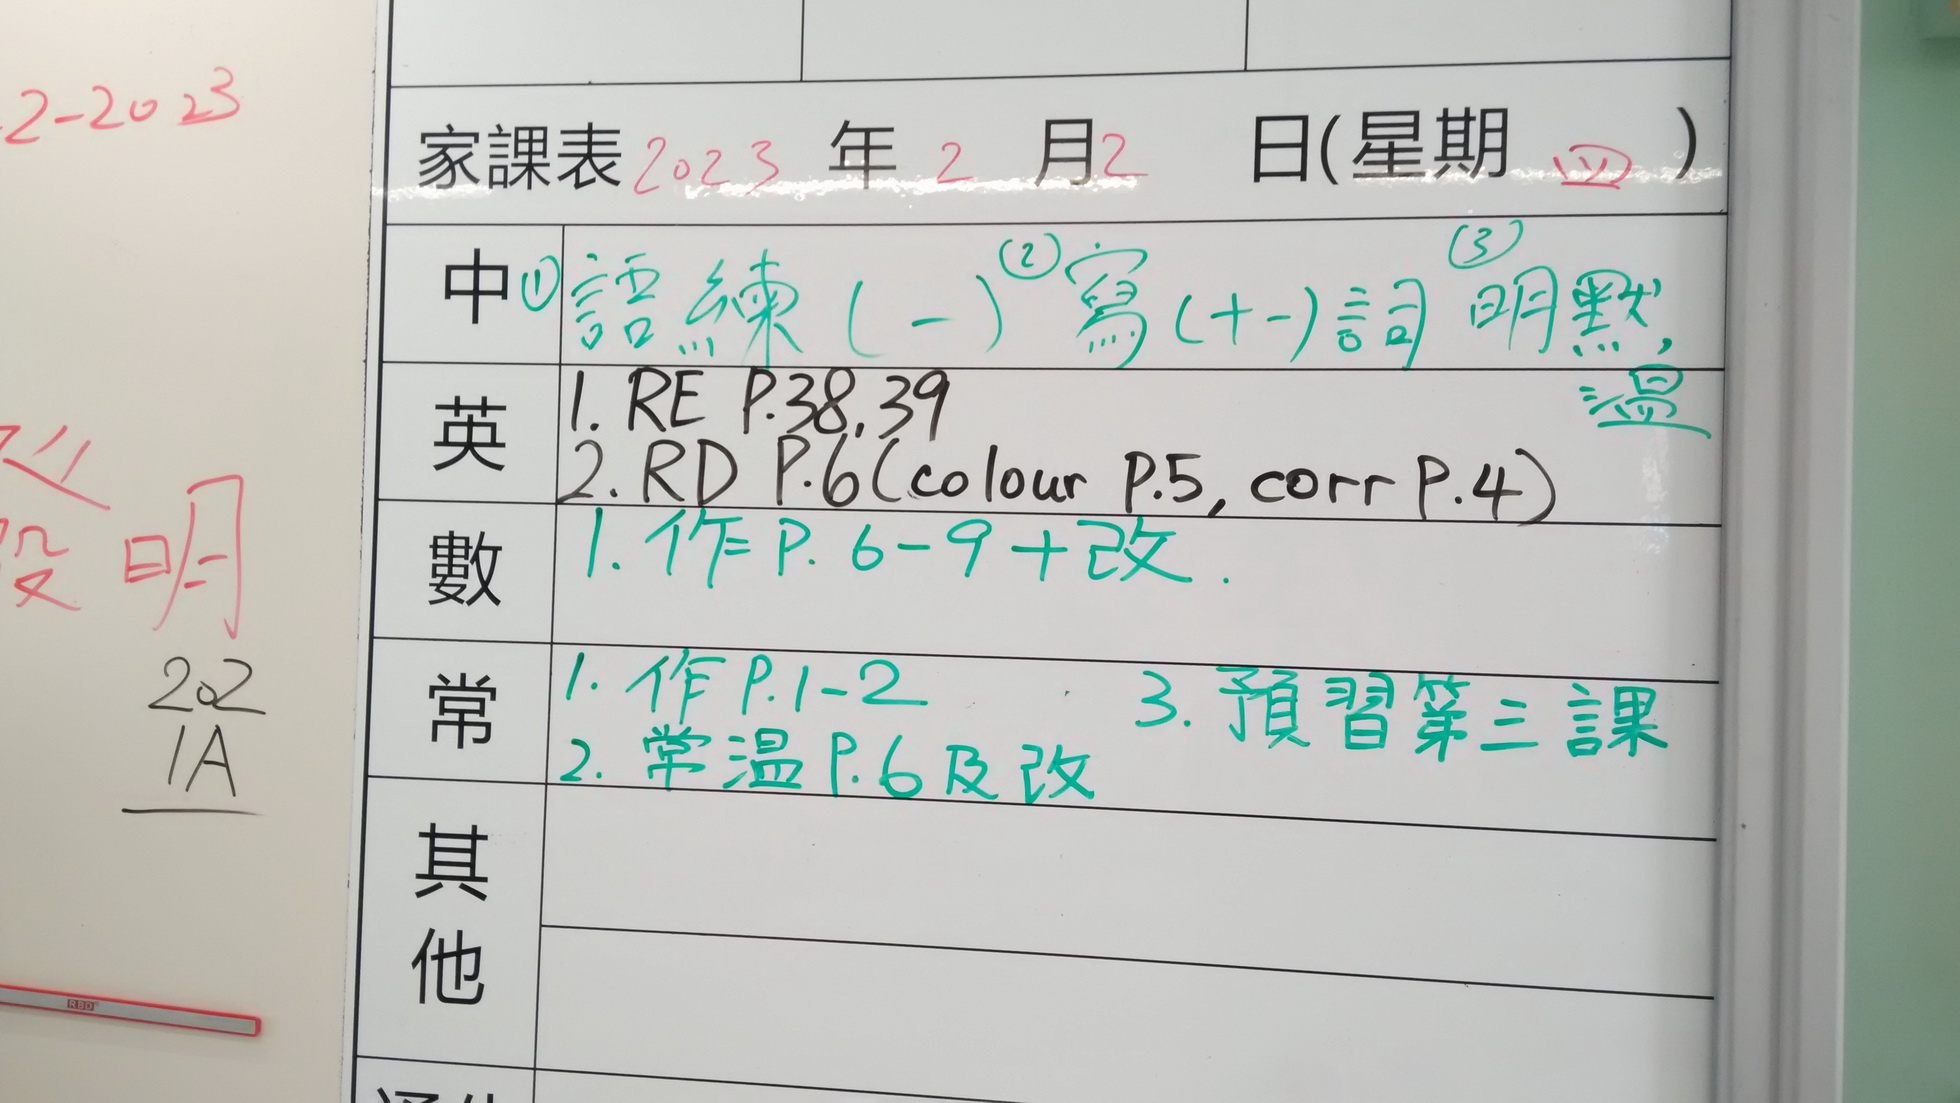 2-2023
家課表 2023 年 2 月 2 日(星期 四 )
中 ① 語練(一) ② 寫(十一)詞 ③ 明默,
溫
英 1. RE P.38,39
2. RD P.6(colour P.5, corr P.4)
數 1. 作 P. 6-9+改.
常 1. 作 P.1-2 3. 預習第三課
2. 常溫 P.6 及改
其
他
明
202
1A
RBD